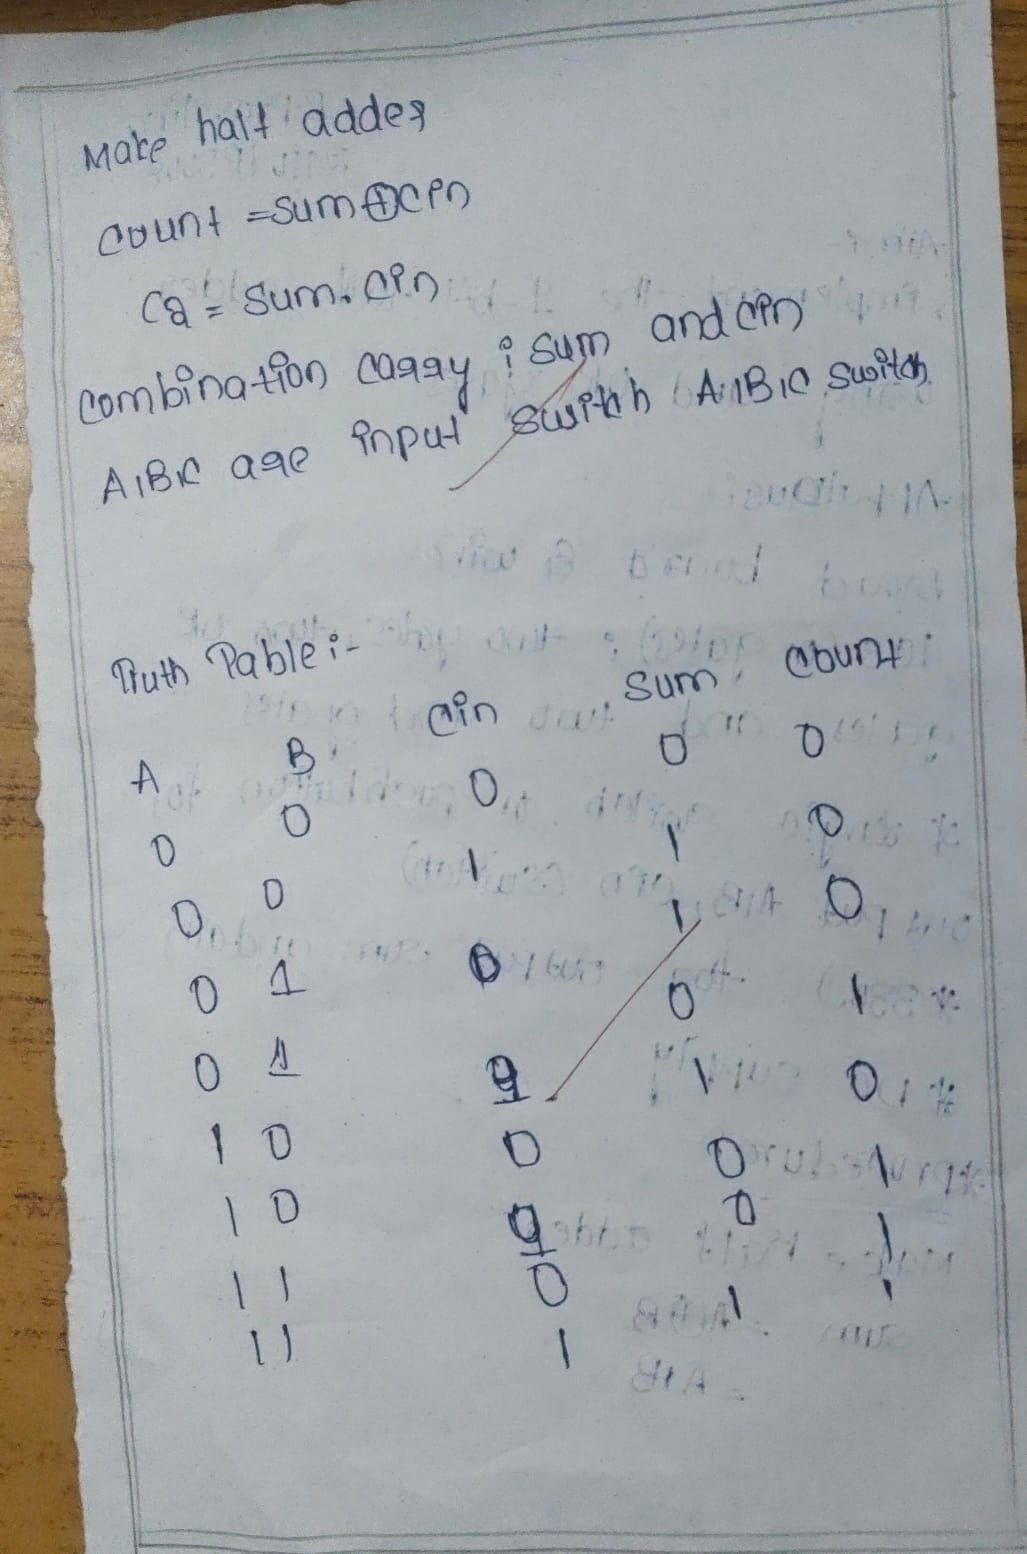 Make half adder
Count = Sum ⊕ Cin
C2 = Sum. Cin
Combination carry ; Sum and Cin
A,B,C are input switch A,B,C switch
Truth Table :-
A B Cin Sum Count
0 0 0 0 0
0 0 1 1 0
0 1 0 1 0
0 1 1 0 1
1 0 0 1 0
1 0 1 0 1
1 1 0 0 1
1 1 1 1 1